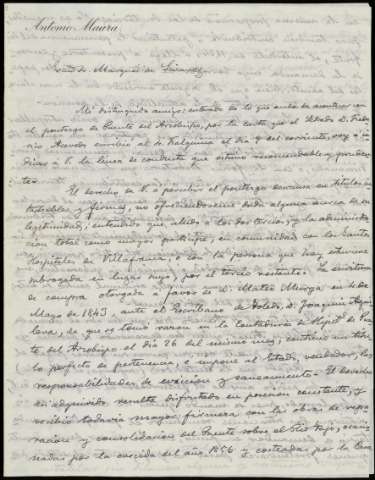 Antonio Maura
Mi distinguido amigo: enterado de lo que acaba de acontecer con
el pontazgo de Puente del Arzobispo, por la carta que el Abogado D.
Acevedo escribió al Sr. el día 9 del corriente, voy á in-
dicar á V. la línea de conducta que estimo recomendable y pruden-
te.
El derecho de V. á percibir el pontazgo descansa en títulos in-
testables y firmes, no ofreciéndoseme duda alguna acerca de su
legitimidad, entendido que, alude á los dos tercios, y la administra-
cion total como mayor partícipe, en comunidad con los Santos
Hospitales de Villafranca, ó con la persona que hoy estuviere
subrogada en lugar suyo, por el tercio restante. La escritura
de compra otorgada á favor de D. Mateo Murga en 4 de
Mayo de 1843, ante el Escribano de Toledo, D. Joaquín
de que se tomó razon en la Contaduría de Hipot. de Puen-
te del Arzobispo el día 26 del mismo mes, contiene un título
perfecto de pertenencia, é impone al Estado, vendedor, las
responsabilidades de eviccion y saneamiento. El derecho
así adquirido, resulta disfrutado en posesion constante, y
recibió todavía mayor firmeza con las obras de repa-
racion y consolidacion del Puente sobre el Rio Tajo, ocasio-
nadas por la crecida del año 1856 y costeadas por la